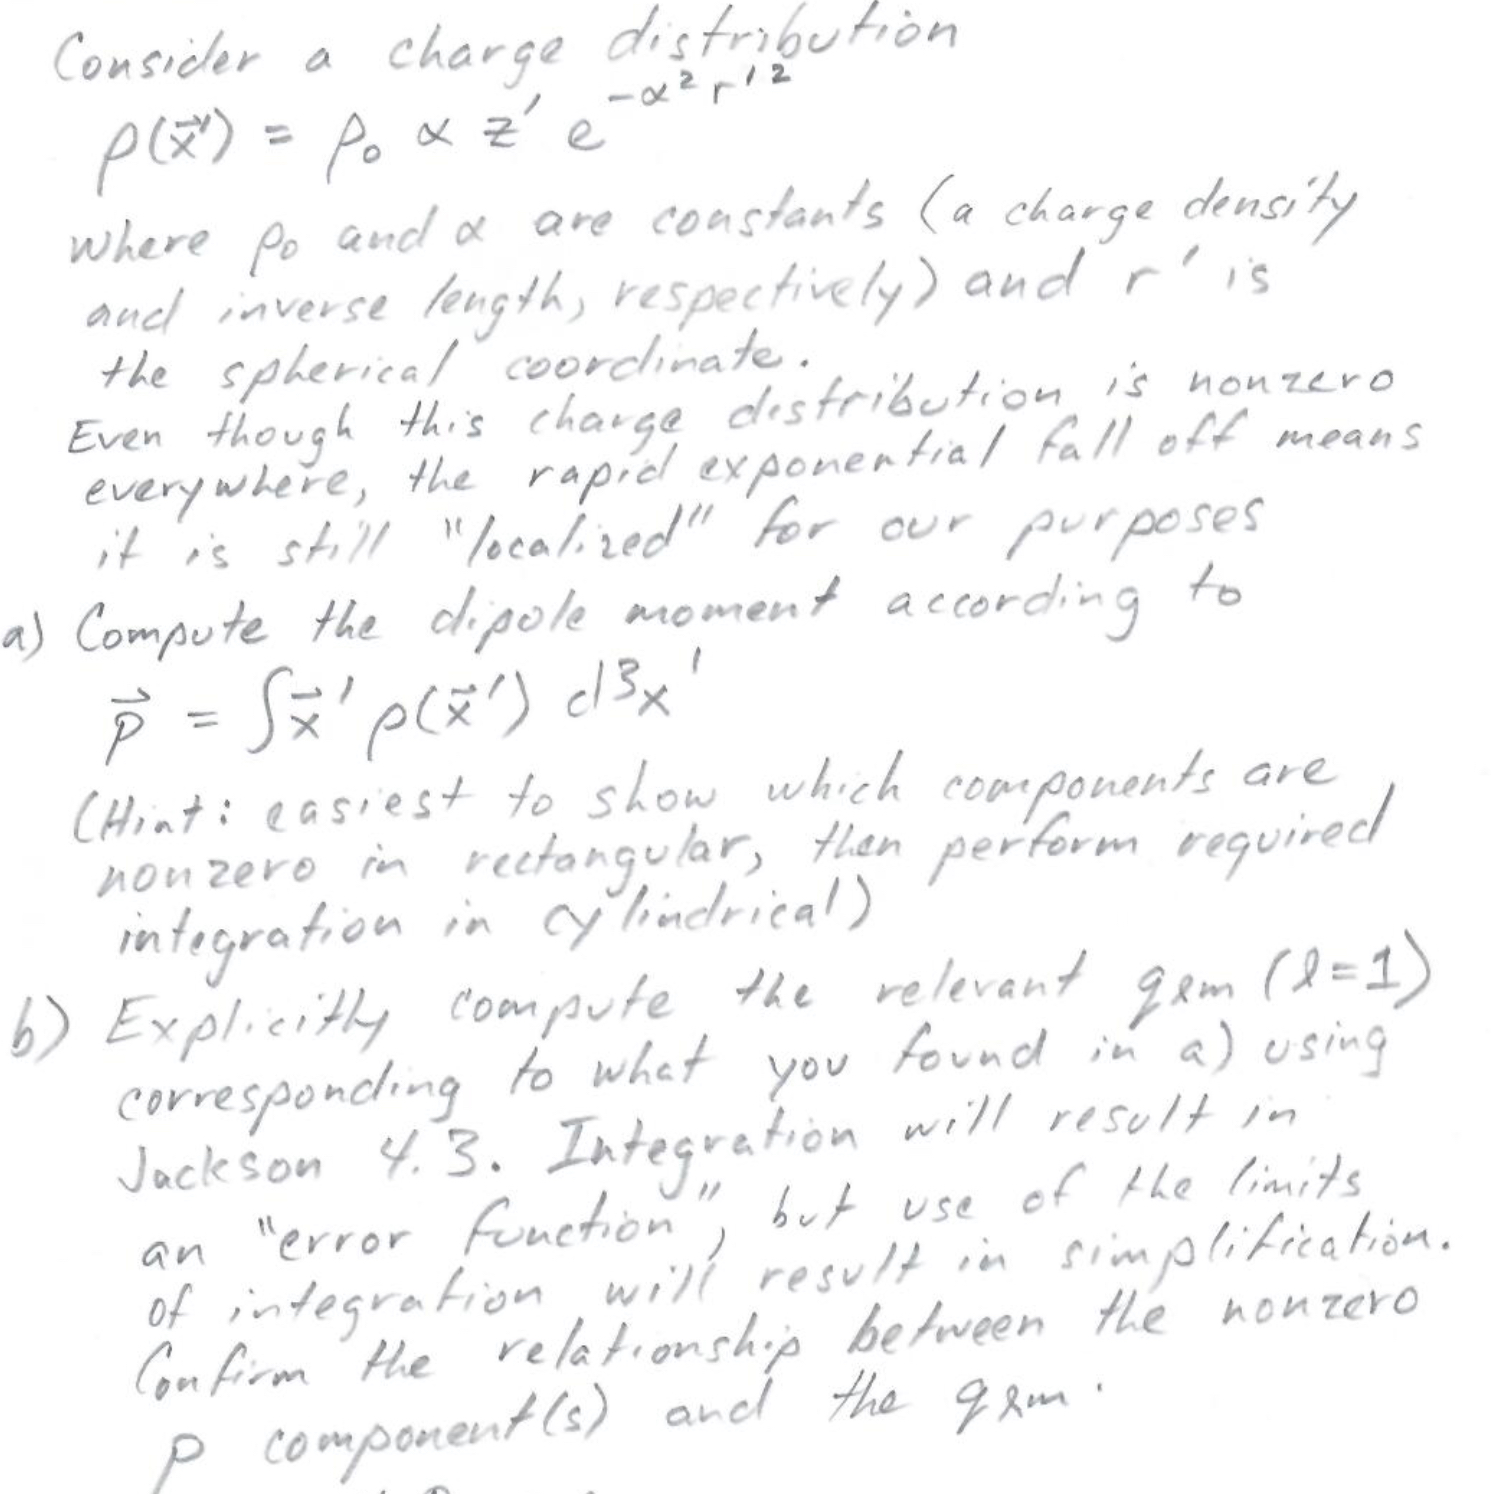 Consider a charge distribution
ρ(x⃗') = ρ₀ α z' e^(-α² r'²)
where ρ₀ and α are constants (a charge density
and inverse length, respectively) and r' is
the spherical coordinate.
Even though this charge distribution is nonzero
everywhere, the rapid exponential fall off means
it is still "localized" for our purposes
a) Compute the dipole moment according to
p⃗ = ∫x⃗' ρ(x⃗') d³x'
(Hint: easiest to show which components are
nonzero in rectangular, then perform required
integration in cylindrical)
b) Explicitly compute the relevant qℓm (ℓ=1)
corresponding to what you found in a) using
Jackson 4.3. Integration will result in
an "error function", but use of the limits
of integration will result in simplification.
Confirm the relationship between the nonzero
p component(s) and the qℓm.